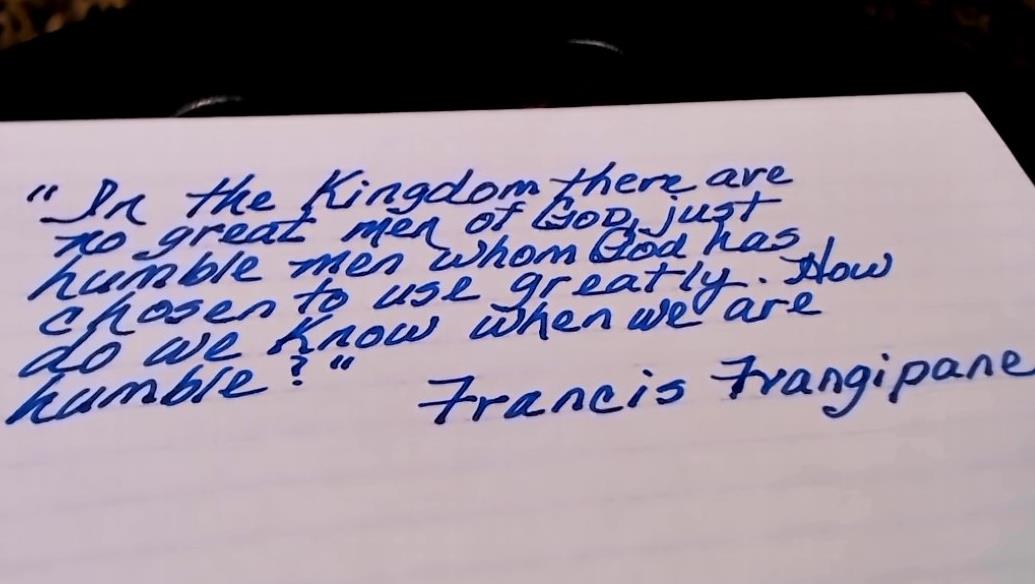 "In the Kingdom there are
no great men of God, just
humble men whom God has
chosen to use greatly. How
do we know when we are
humble?" Francis Frangipane